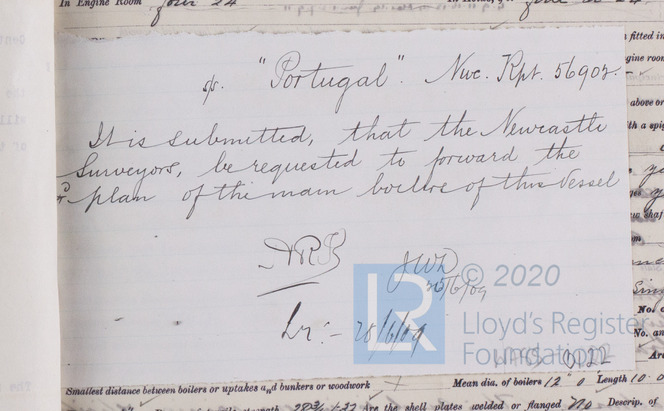 In Engine Room four 24
s/s. "Portugal". Nwc. Rpt. 56902.
It is submitted, that the Newcastle
Surveyors, be requested to forward the
plan of the main boilers of this Vessel
ARB JWD
25/6/09
Lr:- 28/6/09
© 2020
LR
Lloyd's Register
Foundation
0122
fitted in
above or
Smallest distance between boilers or uptakes and bunkers or woodwork
Mean dia. of boilers 12' 0" Length 10' 0
Are the shell plates welded or flanged no Descrip. of